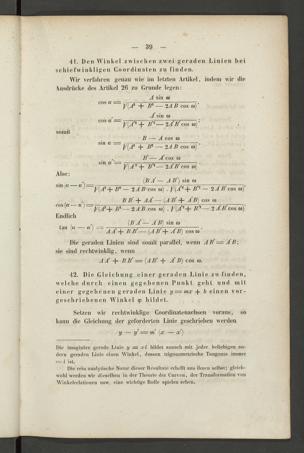 — 39 —
41. Den Winkel zwischen zwei geraden Linien bei
schiefwinkligen Coordinaten zu finden.
Wir verfahren genau wie im letzten Artikel, indem wir die
Ausdrücke des Artikel 26 zu Grunde legen:
cos α = A sin ω / √(A² + B² − 2AB cos ω),
cos α' = A' sin ω / √(A'² + B'² − 2A'B' cos ω);
somit
sin α = B − A cos ω / √(A² + B² − 2AB cos ω),
sin α' = B' − A' cos ω / √(A'² + B'² − 2A'B' cos ω).
Also:
sin(α − α') = (BA' − AB') sin ω / √(A² + B² − 2AB cos ω) . √(A'² + B'² − 2A'B' cos ω)
cos(α − α') = BB' + AA' − (AB' + A'B) cos ω / √(A² + B² − 2AB cos ω) . √(A'² + B'² − 2A'B' cos ω)
Endlich
tan (α − α') = (BA' − AB') sin ω / AA' + BB' − (AB' + A'B) cos ω.
Die geraden Linien sind somit parallel, wenn AB' = A'B;
sie sind rechtwinklig, wenn
AA' + BB' = (AB' + A'B) cos ω.
42. Die Gleichung einer geraden Linie zu finden,
welche durch einen gegebenen Punkt geht und mit
einer gegebenen geraden Linie y = mx + b einen vor-
geschriebenen Winkel φ bildet.
Setzen wir rechtwinklige Coordinatenachsen voraus, so
kann die Gleichung der geforderten Linie geschrieben werden
y − y' = m' (x − x')
Die imaginäre gerade Linie bildet somit mit jeder beliebigen an-
dern geraden Linie einen Winkel, dessen trigonometrische Tangente immer
= i ist.
Die rein analytische Natur dieser Resultate erhellt aus ihnen selbst; gleich-
wohl werden wir dieselben in der Theorie der Curven, der Transformation von
Winkelrelationen usw. eine wichtige Rolle spielen sehen.